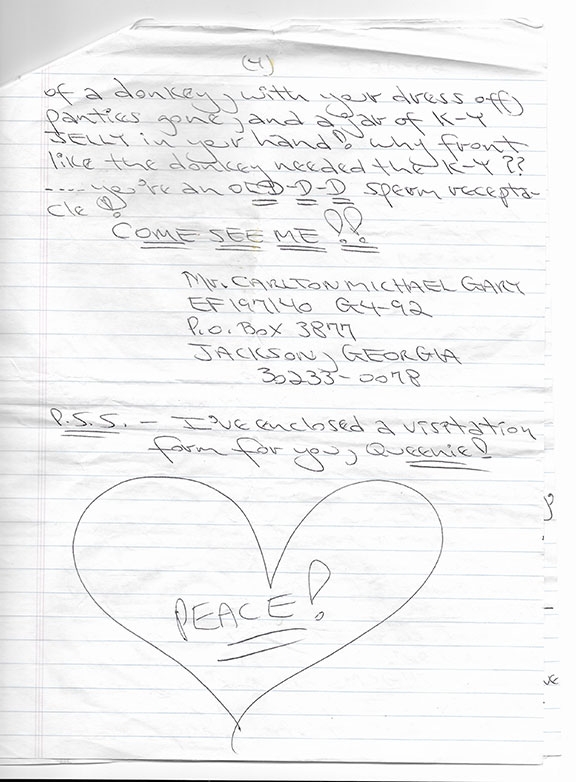 (4)
of a donkey, with your dress off,
panties gone, and a jar of K-Y
JELLY in your hand! why front
like the donkey needed the K-Y ??
---- you're an O-D-D-D sperm recepta-
cle!
COME SEE ME!!
Mr. CARLTON MICHAEL GARY
EF197140 G4-92
P.O. Box 3877
JACKSON, GEORGIA
30233-0078
P.S.S. - I've enclosed a visitation
form for you, Queenie!
PEACE!